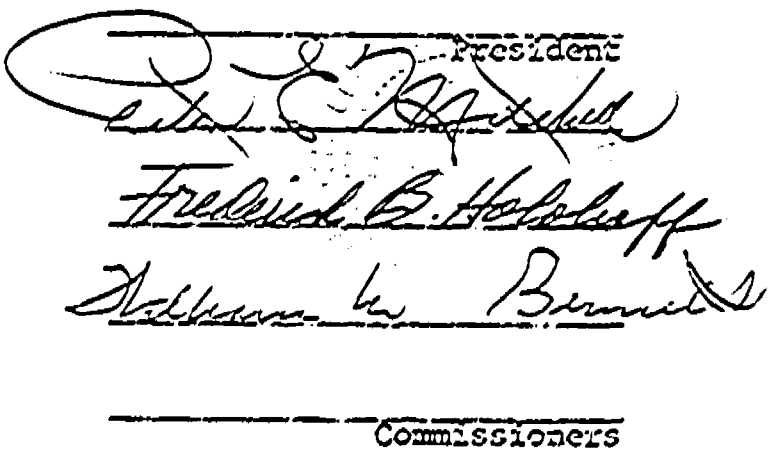 President
Peter E. Mitchell
Frederick B. Holoboff
William M. Bennett
Commissioners